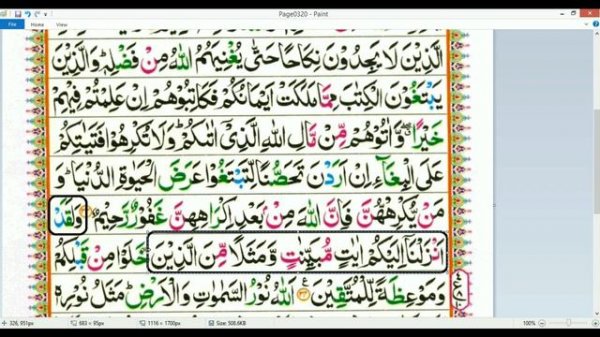 Page0320 - Paint
File Home View
الَّذِیْنَ لَا یَجِدُوْنَ نِكَاحًا حَتّٰى یُغْنِیَهُمُ اللّٰهُ مِنْ فَضْلِهٖؕ وَ الَّذِیْنَ
یَبْتَغُوْنَ الْكِتٰبَ مِمَّا مَلَكَتْ اَیْمَانُكُمْ فَكَاتِبُوْهُمْ اِنْ عَلِمْتُمْ فِیْهِمْ
خَیْرًا ۖۗ وَّ اٰتُوْهُمْ مِّنْ مَّالِ اللّٰهِ الَّذِیْۤ اٰتٰىكُمْؕ وَ لَا تُكْرِهُوْا فَتَیٰتِكُمْ
عَلَى الْبِغَآءِ اِنْ اَرَدْنَ تَحَصُّنًا لِّتَبْتَغُوْا عَرَضَ الْحَیٰوةِ الدُّنْیَاؕ وَ
مَنْ یُّكْرِهْهُّنَّ فَاِنَّ اللّٰهَ مِنْۢ بَعْدِ اِكْرَاهِهِنَّ غَفُوْرٌ رَّحِیْمٌ۝۳۳ وَ لَقَدْ
اَنْزَلْنَاۤ اِلَیْكُمْ اٰیٰتٍ مُّبَیِّنٰتٍ وَّ مَثَلًا مِّنَ الَّذِیْنَ خَلَوْا مِنْ قَبْلِكُمْ
وَ مَوْعِظَةً لِّلْمُتَّقِیْنَ۠۝۳۴ اَللّٰهُ نُوْرُ السَّمٰوٰتِ وَ الْاَرْضِؕ مَثَلُ نُوْرِهٖ
326, 951px 683 × 95px 1116 × 1700px Size: 508.6KB 100%